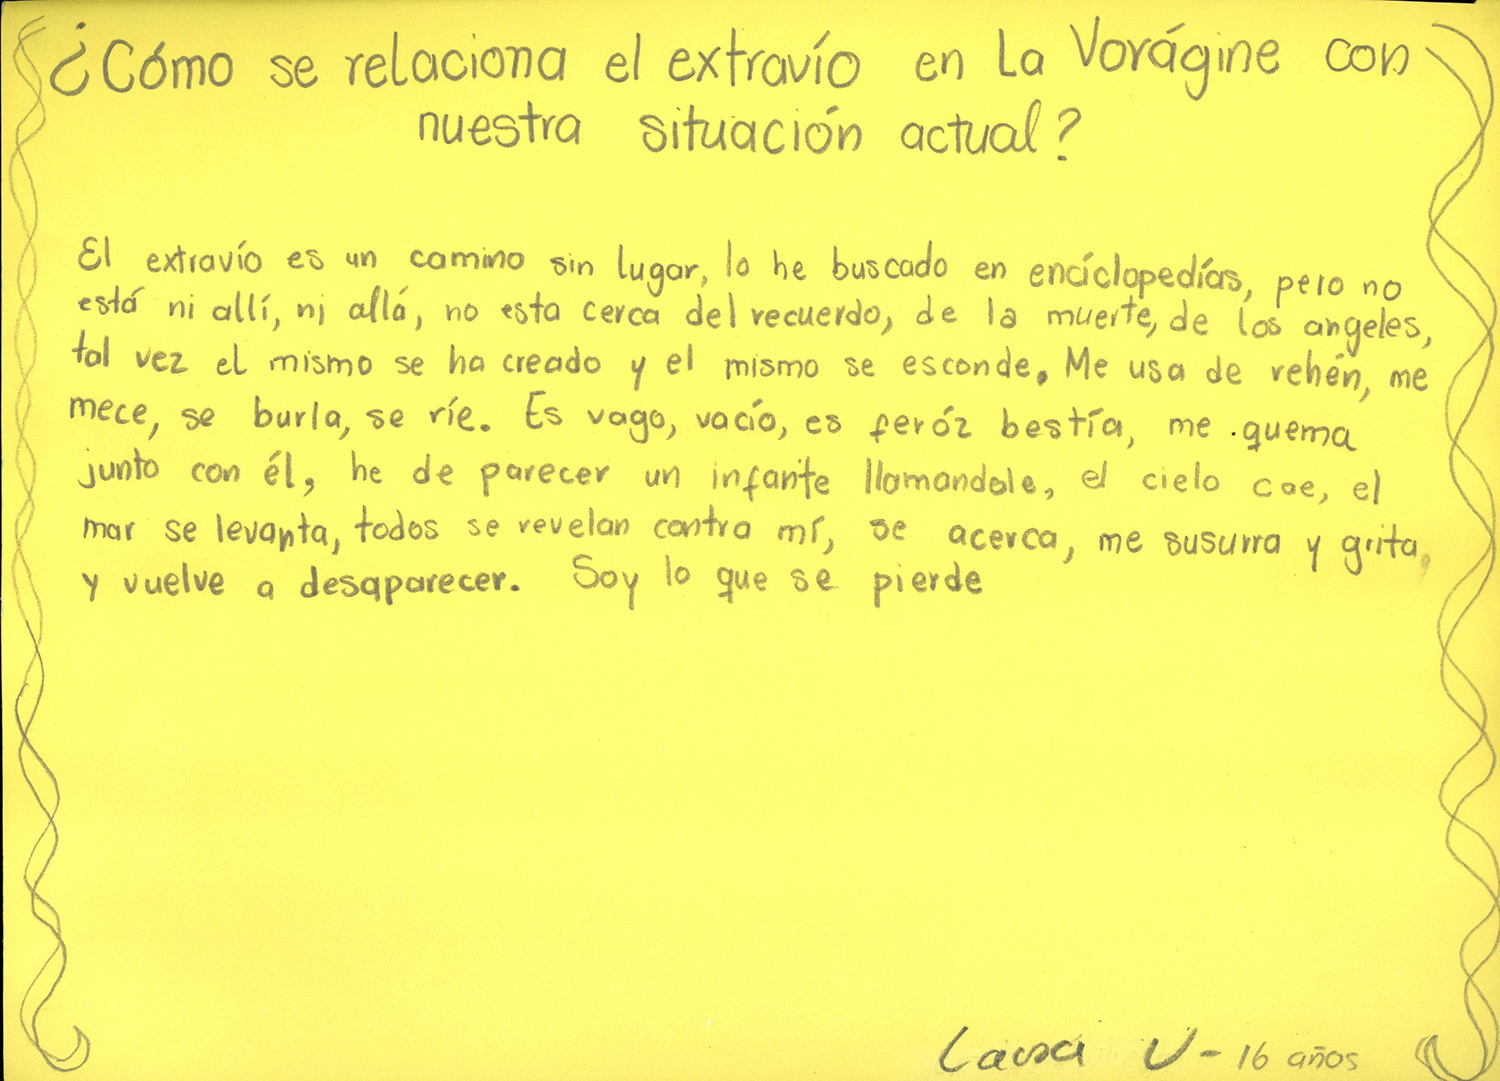 ¿Cómo se relaciona el extravío en La Vorágine con
nuestra situación actual?
El extravío es un camino sin lugar, lo he buscado en encíclopedías, pero no
está ni allí, ni allá, no esta cerca del recuerdo, de la muerte, de los angeles,
tal vez el mismo se ha creado y el mismo se esconde. Me usa de rehén, me
mece, se burla, se ríe. Es vago, vacío, es feróz bestía, me quema
junto con él, he de parecer un infante llamandole, el cielo cae, el
mar se levanta, todos se revelan contra mí, se acerca, me susurra y grita,
y vuelve a desaparecer. Soy lo que se pierde
Laura U - 16 años